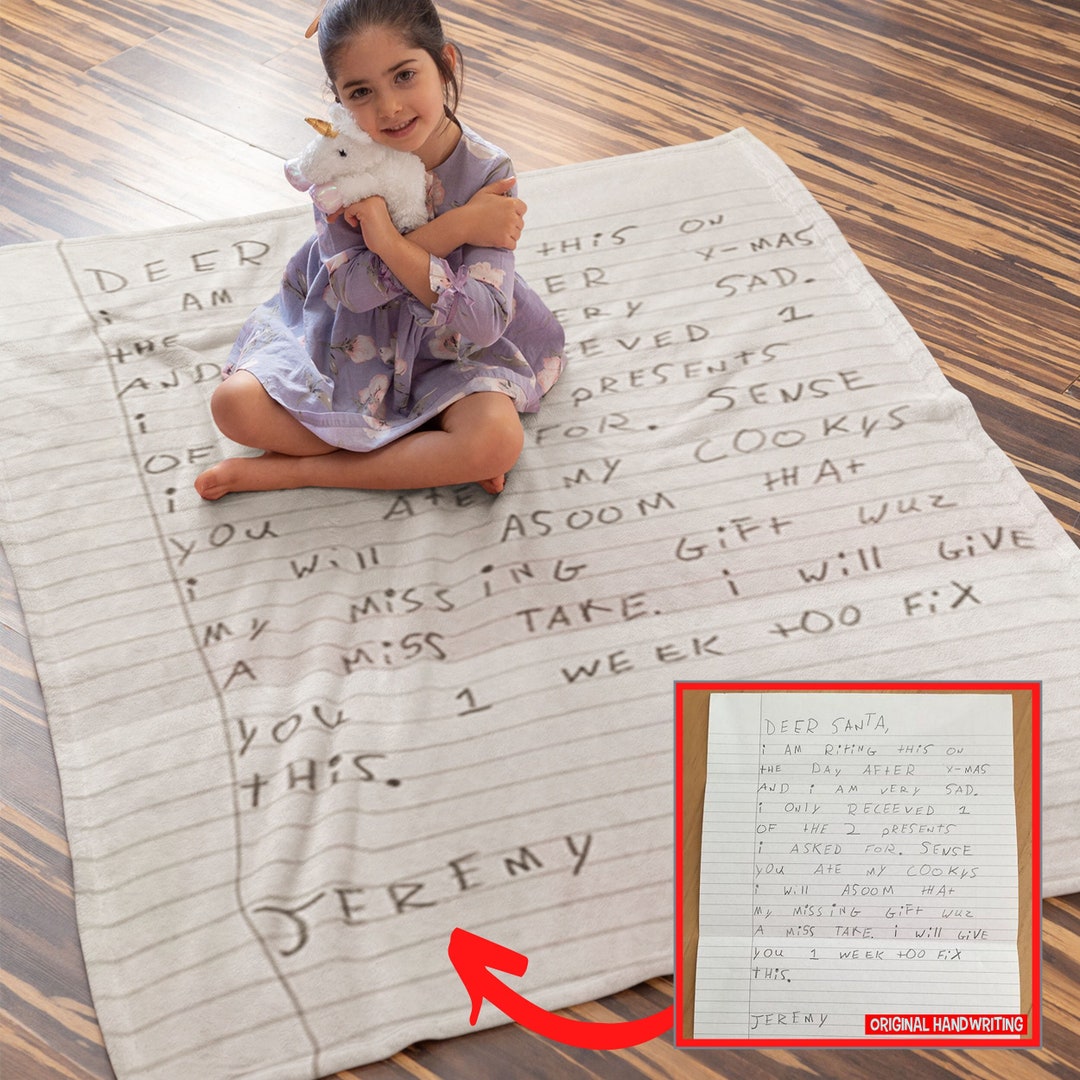 DEER
i AM tHiS ON
tHE ER X-MAS
AND ERY SAD.
i EEVED 1
OF PRESENTS
i FOR. SENSE
YOU AtE MY COOKYS
i Will ASOOM tHAt
MY MiSSiNG GiFt WUZ
A MiSS TAKE. i Will GiVE
YOU 1 WEEK tOO FiX
tHiS.
JEREMY
DEER SANTA,
i AM RitiNG tHiS ON
tHE DAY AFtER X-MAS
AND i AM VERY SAD.
i ONLY RECEEVED 1
OF tHE 2 PRESENtS
i ASKED FOR. SENSE
YOU AtE MY COOKYS
i Will ASOOM tHAt
MY MiSSiNG GiFt WUZ
A MiSS TAKE. i Will GiVE
YOU 1 WEEK tOO FiX
tHiS.
JEREMY
ORIGINAL HANDWRITING